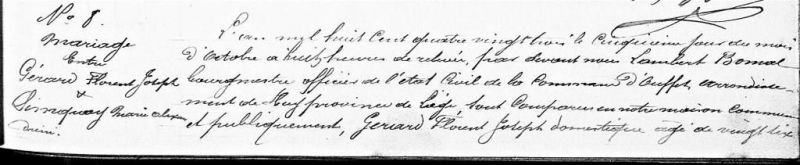 No 8.
Mariage
Entre
Gérard Florent Joseph
&
Simquay Marie
L'an mil huit cent quatre vingt trois le cinquième jour du mois
d'Octobre à huit heures de relevée, par devant nous Lambert Bonnal
bourgmestre officier de l'état civil de la Commune d'Ouffet, arrondisse-
ment de Huy province de Liège sont comparus en notre maison commune
et publiquement, Gerard Florent Joseph domestique agé de vingt six